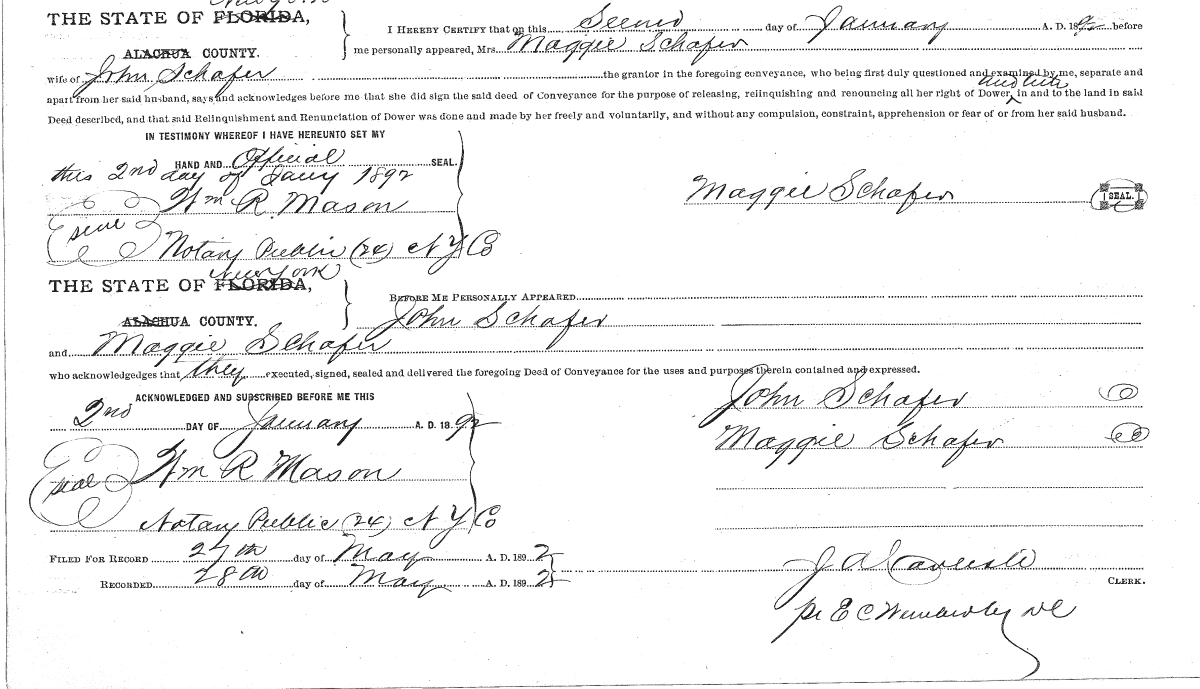 New York
THE STATE OF FLORIDA,
I HEREBY CERTIFY that on this Second day of January A. D. 1892 before
ALACHUA COUNTY.
me personally appeared, Mrs. Maggie Schafer
wife of John Schafer the grantor in the foregoing conveyance, who being first duly questioned and examined by me, separate and
apart from her said husband, says and acknowledges before me that she did sign the said deed of Conveyance for the purpose of releasing, relinquishing and renouncing all her right of Dower, in and to the land in said
Deed described, and that said Relinquishment and Renunciation of Dower was done and made by her freely and voluntarily, and without any compulsion, constraint, apprehension or fear of or from her said husband.
IN TESTIMONY WHEREOF I HAVE HEREUNTO SET MY
HAND AND Official SEAL.
this 2nd day of Jany 1892
Maggie Schafer SEAL.
Wm R. Mason
seal
Notary Public (24) N Y Co
New York
THE STATE OF FLORIDA,
BEFORE ME PERSONALLY APPEARED
ALACHUA COUNTY.
John Schafer
and Maggie Schafer
who acknowledgedges that they executed, signed, sealed and delivered the foregoing Deed of Conveyance for the uses and purposes therein contained and expressed.
ACKNOWLEDGED AND SUBSCRIBED BEFORE ME THIS
John Schafer
2nd DAY OF January A. D. 1892
Maggie Schafer
seal Wm R Mason
Notary Public (24) N Y Co
FILED FOR RECORD 27th day of May A. D. 1892
RECORDED 28th day of May A. D. 1892
J A Carlisle CLERK.
pr E C Wimberley DC